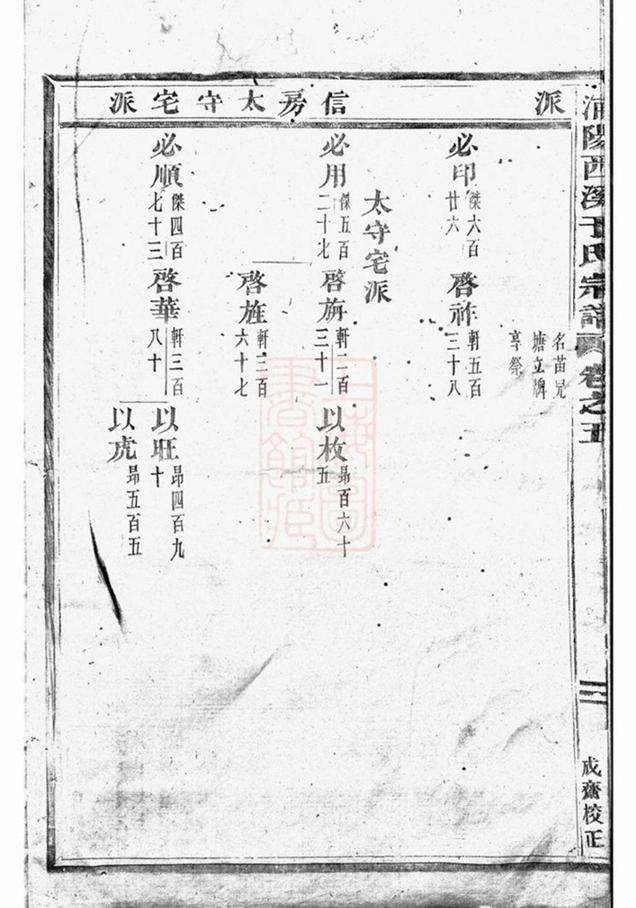 浦陽西溪于氏宗譜 卷之五
成齋校正
派
信房太守宅派
名苗兄
塘立牌
享祭
必印 傑六百廿六 啓祚 軒五百三十八
太守宅派
必用 傑五百二十七 啓旃 軒二百三十一 以枚 昂百六十五
啓旌 軒三百六十七
必順 傑四百七十三 啓華 軒三百八十 以旺 昂四百九十
以虎 昂五百五